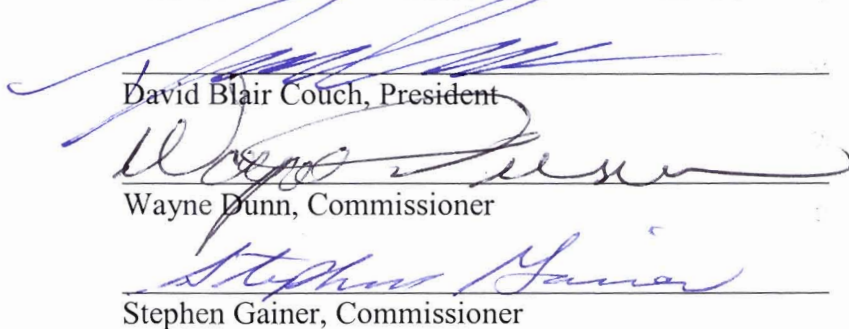 David Blair Couch, President
Wayne Dunn
Wayne Dunn, Commissioner
Stephen Gainer
Stephen Gainer, Commissioner